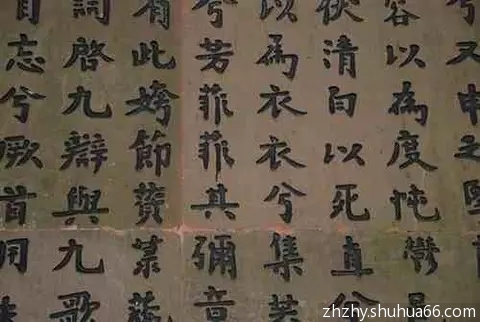 兮又申之
容以為度忳鬱邑
伏清白以死直兮
以為衣衣兮集芙
兮芳菲菲其彌章
有此姱節薋菉葹
詞啓九辯與九歌
自忘兮厥首用夫
zhzhy.shuhua66.com